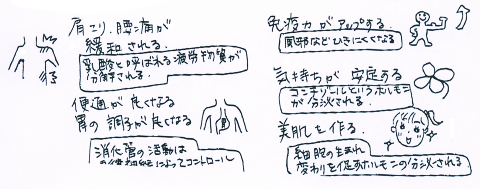 肩こり、腰痛が
緩和される.
乳酸と呼ばれる疲労物質が
分解される.
便通が良くなる
胃の調子が良くなる
消化管の活動は
によってコントロール
免疫力がアップする.
風邪などひきにくくなる
気持ちが安定する
コーチゾールというホルモン
が分泌される.
美肌を作る.
細胞の生まれ
変わりを促すホルモンの分泌される